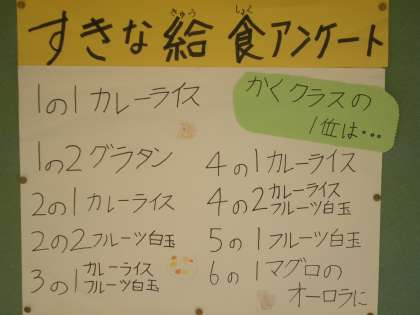 すきな給食アンケート
きゅう しょく
かくクラスの
1位は・・・
1の1 カレーライス
1の2 グラタン
2の1 カレーライス
2の2 フルーツ白玉
3の1 カレーライス
フルーツ白玉
4の1 カレーライス
4の2 カレーライス
フルーツ白玉
5の1 フルーツ白玉
6の1 マグロの
オーロラに